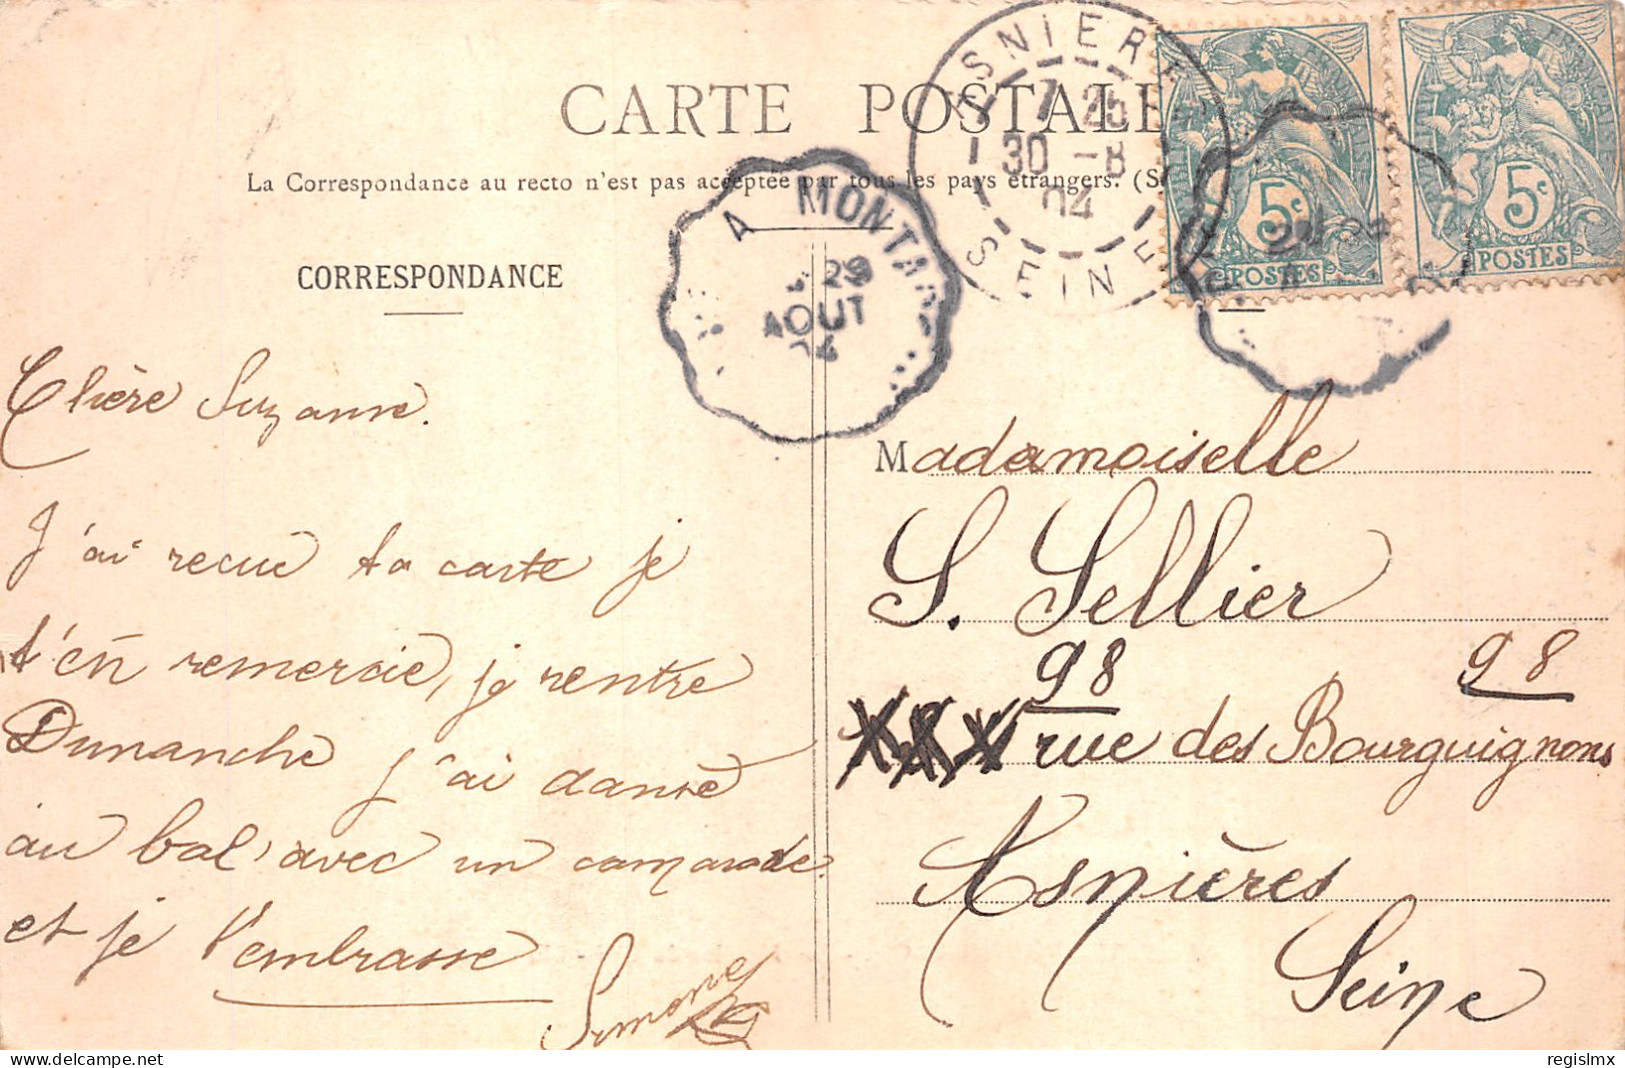 CARTE POSTALE
La Correspondance au recto n'est pas acceptée par tous les pays étrangers. (S
CORRESPONDANCE
A MONTAR
29
AOUT
04
ASNIERES
7 25
30 -8
04
SEINE
5c
POSTES
5c
POSTES
Chère Suzanne.
J'ai recue ta carte je
t'en remercie, je rentre
Dimanche j'ai dansé
au bal avec un camarade.
et je t'embrasse
Simone
Madamoiselle
S. Sellier
98 98
rue des Bourguignons
Asnières
Seine
delcampe.net
regislmx